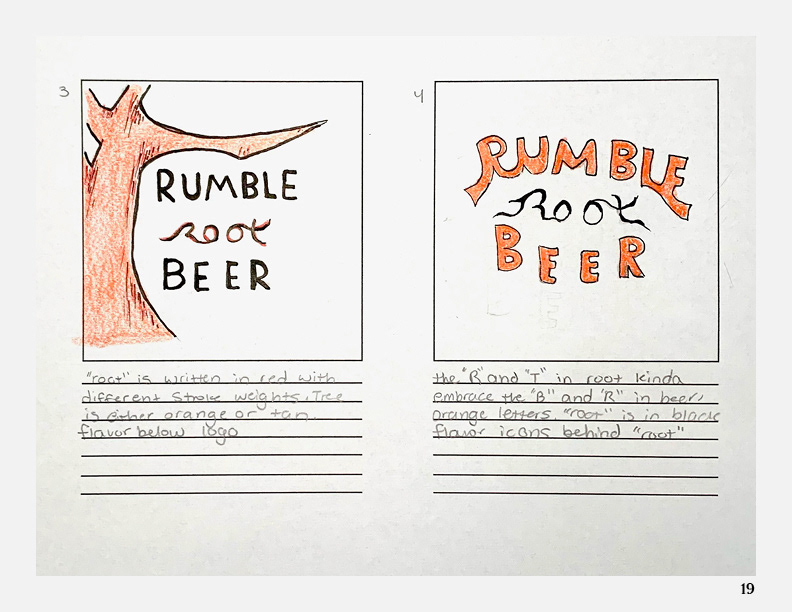 3
RUMBLE
root
BEER
"root" is written in red with
different stroke weights. Tree
is either orange or tan.
flavor below logo
4
RUMBLE
Root
BEER
the "R" and "T" in root kinda
embrace the "B" and "R" in beer,
orange letters. "root" is in black
flavor icons behind "root"
19